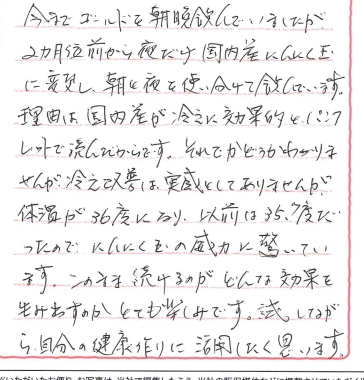 今までゴールドを朝晩飲んでいましたが
2カ月位前から夜だけ国内産にんにく玉
に変更し、朝と夜を使い分けて飲んでいます。
理由は国内産が冷えに効果的とパンフ
レットで読んだからです。それでかどうかわかりま
せんが冷え改善は実感としてありませんが
体温が36度になり、以前は35.7度だ
ったので にんにく玉の威力に驚いてい
ます。このまま続けるのがどんな効果を
生み出すのかとても楽しみです。試しなが
ら自分の健康作りに活用したく思います。